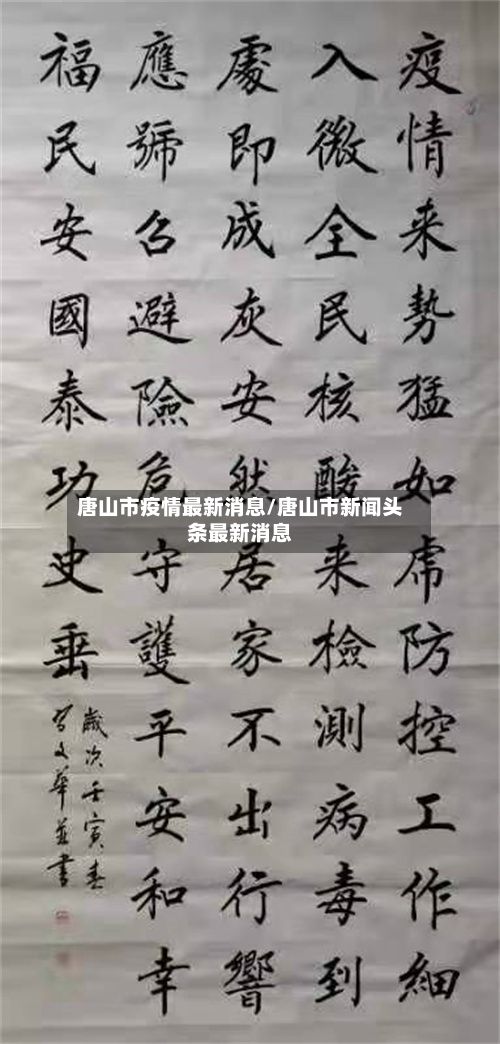 疫情来勢猛如虎防控工作細
入微全民核酸来檢測病毒到
處即成灰安然居家不出行響
應號召避險危守護平安和幸
福民安國泰功史垂
歲次壬寅春
文華並書
唐山市疫情最新消息/唐山市新闻头
条最新消息